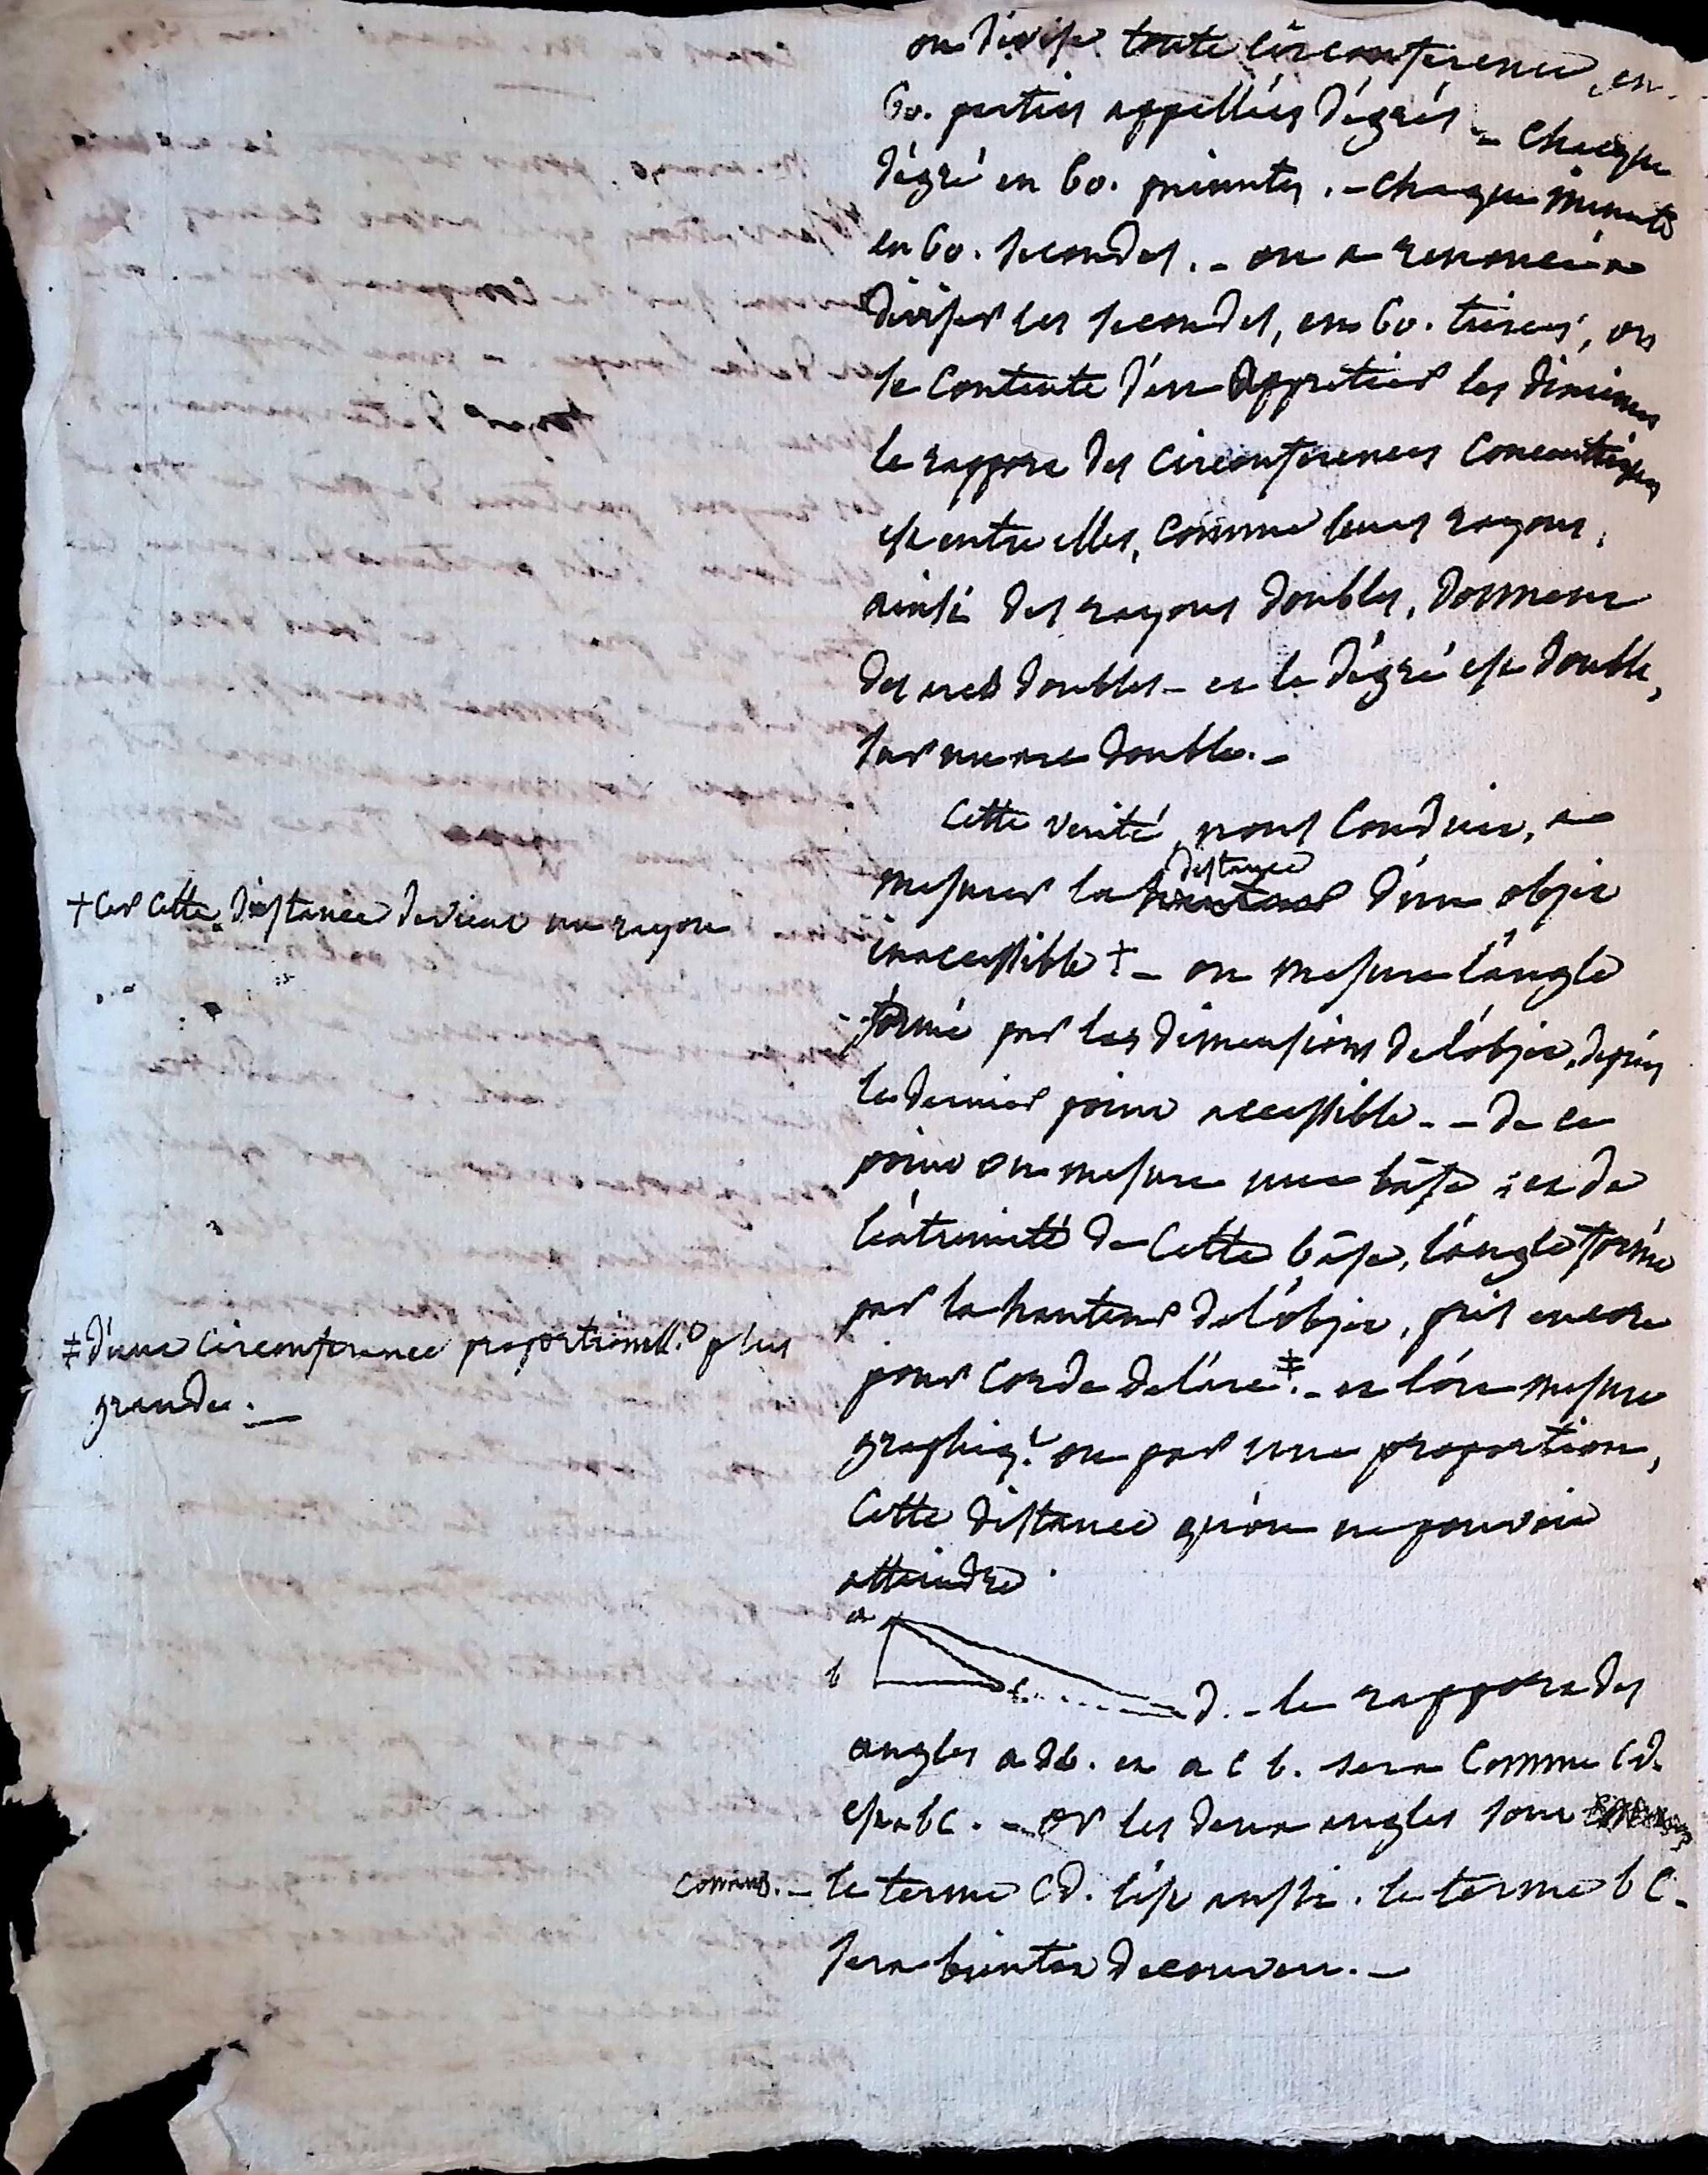 on divise toute circonference en
60. parties appellées dégrés – chaque
dégré en 60. minutes. – chaque minute
en 60. secondes. – on a renoncé a
diviser les secondes, en 60. tierces, on
se contente d'en appretier les dixiemes
le rapport des circonferences concentriques
est entre elles, comme leurs rayons.
ainsi des rayons doubles, donnent
des arcs doubles – et le dégré est double,
sur un arc double. –
Cette verité nous conduit, a
distance
mesurer la hauteur d'un objet
inaccessible + – on mesure l'angle
+ car cette distance devient un rayon
formé par les dimensions de l'objet, depuis
le dernier point accessible. – de ce
point on mesure une bâse ; et de
l'extremité de cette bâse, l'angle formé
par la hauteur de l'objet, pris encore
pour corde de l'arc ‡. – et l'on mesure
‡ d'une circonference proportionell.t plus
grande. –
graphiq.t ou par une proportion,
cette distance qu'on ne pouvoit
atteindre.
a
b c d. – le rapport des
angles adb. et acb. sera comme cd.
est a bc. – or les deux angles sont
connus. – le terme cd. l'est aussi. le terme bc –
sera bientot decouvert. –